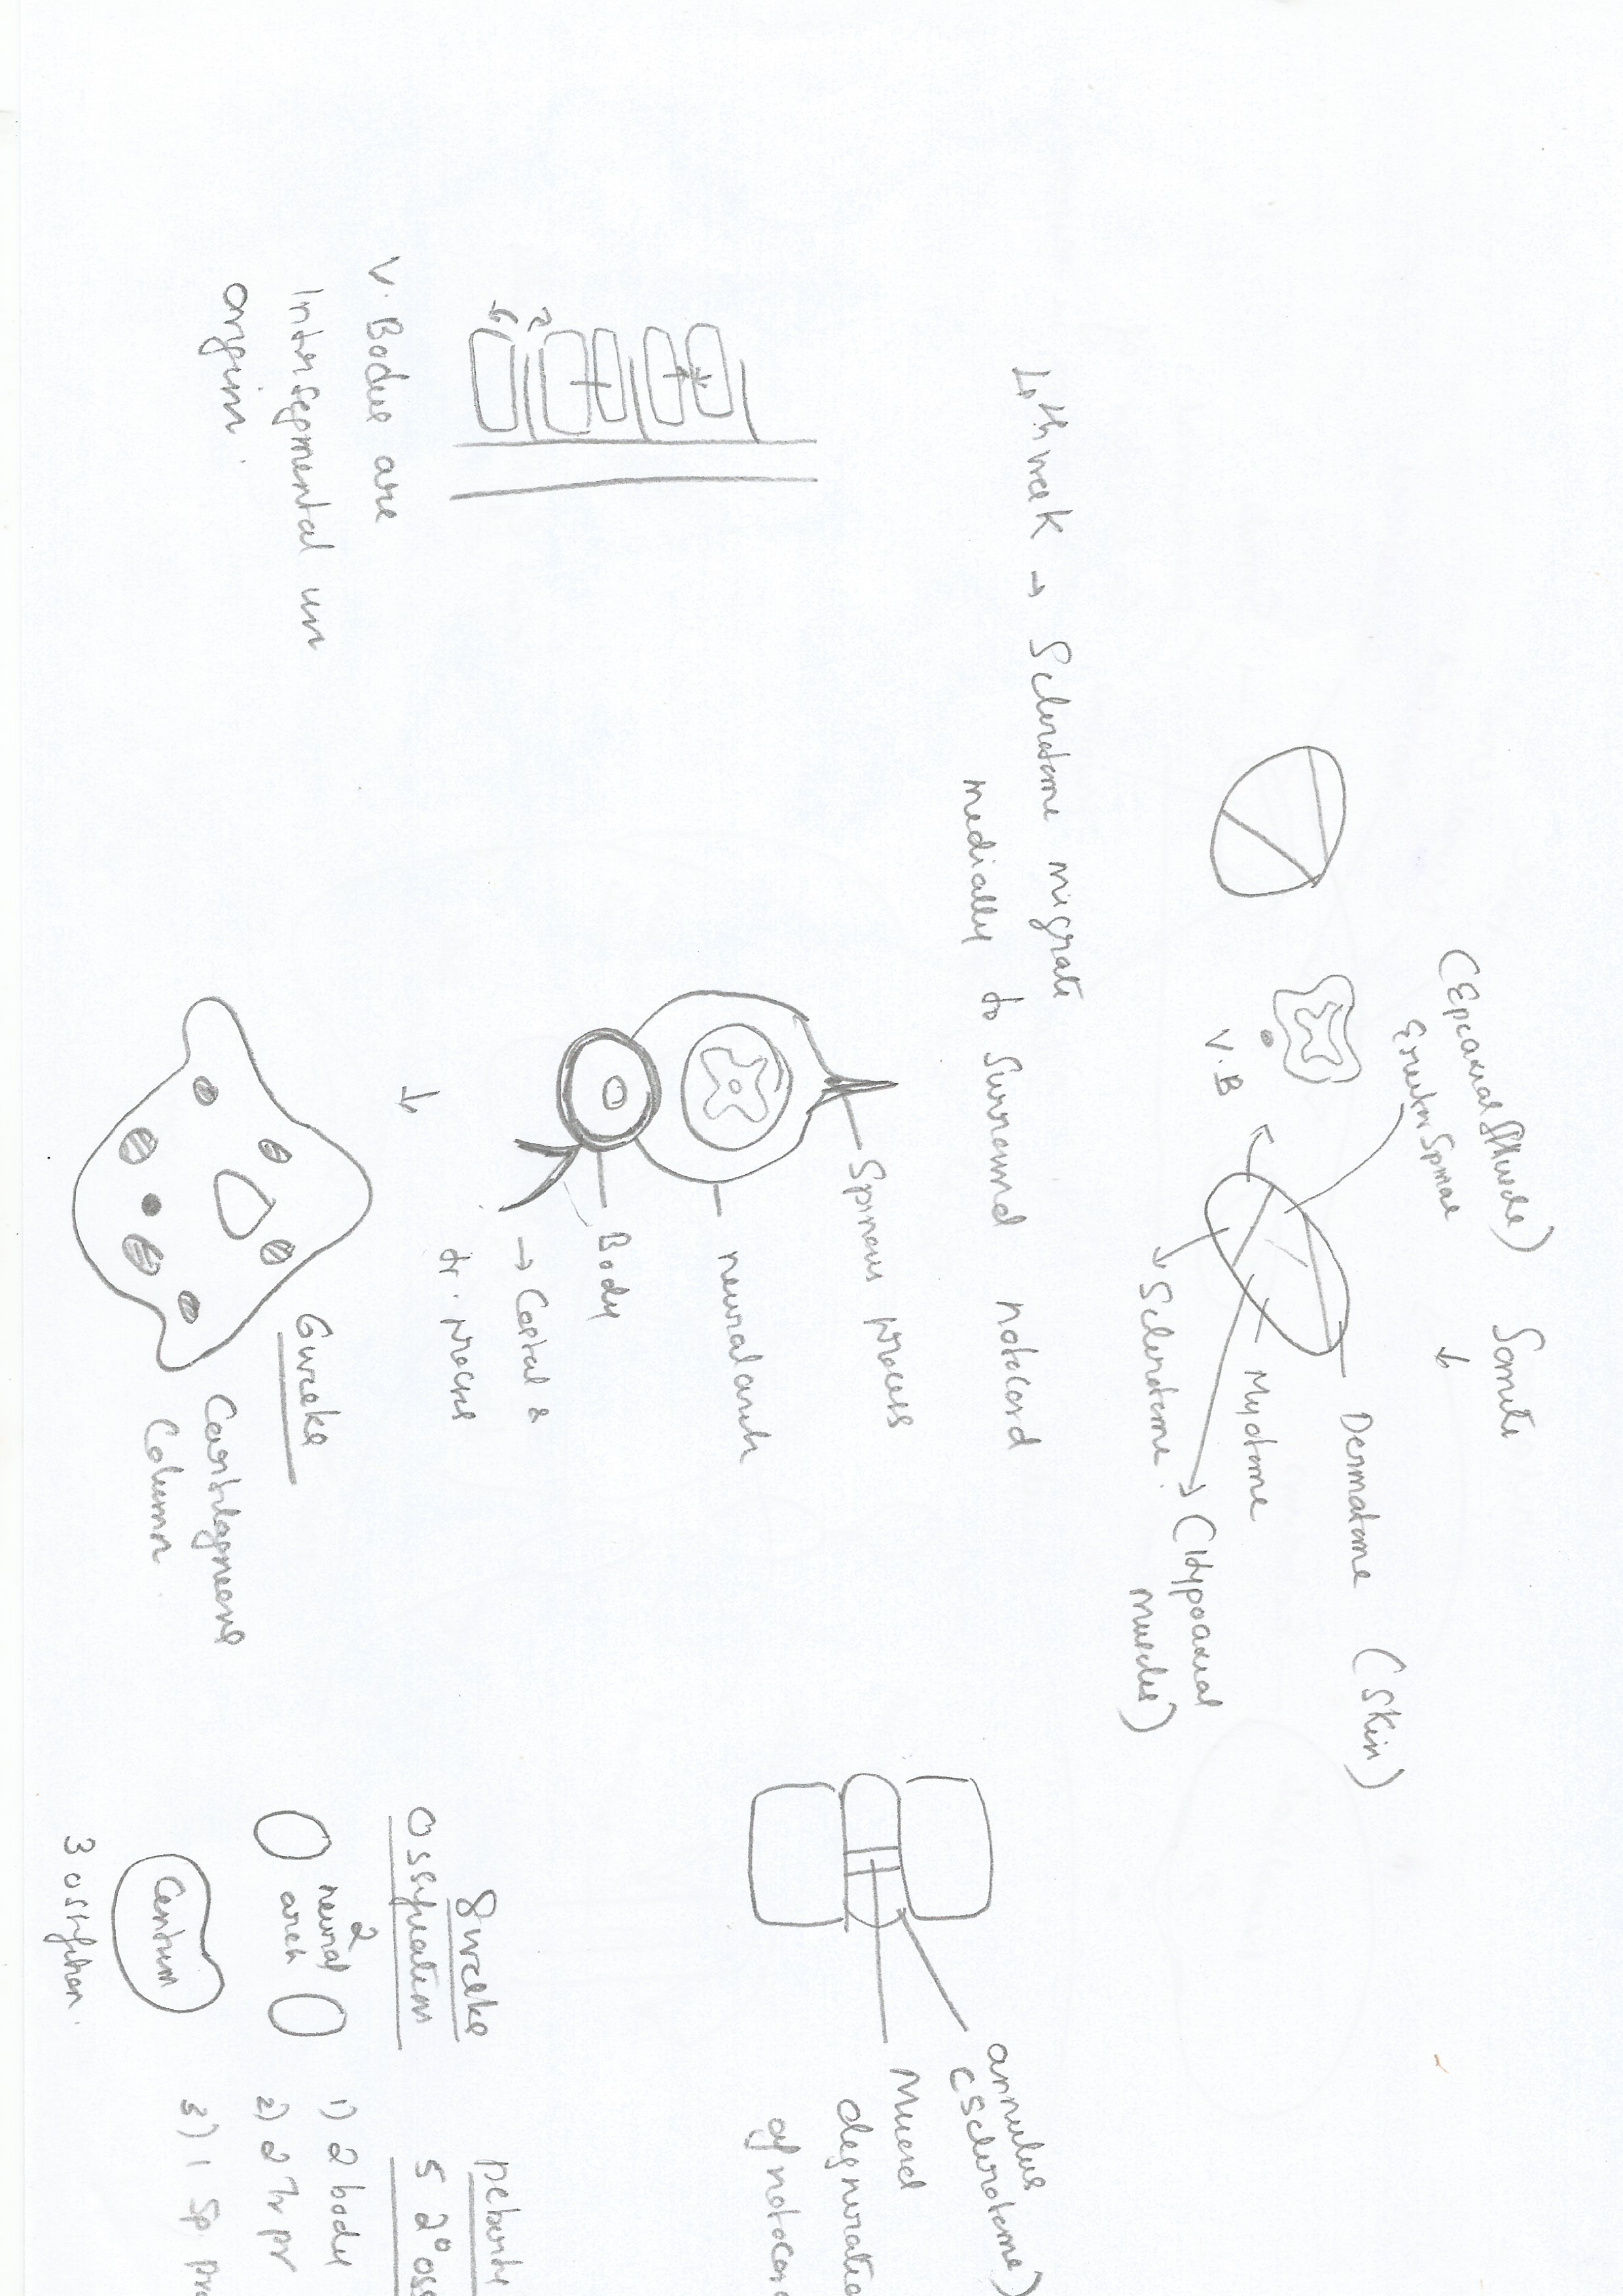 Somite
(Epiaxial Muscle)
Erector Spinae
Dermatome (Skin)
Myotome
V.B
(Hypoaxial
muscles)
Sclerotome
4th week → Sclerotome migrate
medially to surround notocord
annulus
(sclerotome)
Mucoid
degneratio
of notocord
Spinous process
neural arch
Body
→ Costal &
tr. process
V. Bodies are
Intersegmental in
origin.
6 weeks
Cartilagneous
Column
8 weeks
Ossification
2
neural
arch
Centrum
3 ossfiction.
peberty
5 2° oss
1) 2 body
2) 2 Tr pr
3) 1 Sp. pro